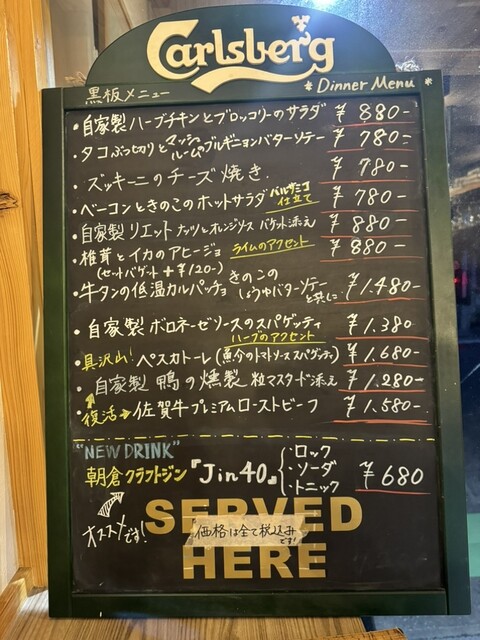 Carlsberg
*Dinner Menu*
黒板メニュー
・自家製ハーブチキンとブロッコリーのサラダ ¥880-
・タコぶつ切りとマッシュルームのブルギニョンバターソテー ¥780-
・ズッキーニのチーズ焼き. ¥780-
・ベーコンときのこのホットサラダ バルサミコ仕立て ¥780-
・自家製リエット ナッツとオレンジソース バケット添え ¥880-
・椎茸とイカのアヒージョ ライムのアクセント ¥880-
(セットバゲット+¥120-)
・牛タンの低温カルパッチョ きのこのしょうゆバターソテーと共に ¥1.480-
・自家製ボロネーゼソースのスパゲッティ ¥1.380
ハーブのアクセント
・具沢山!ペスカトーレ(魚介のトマトソーススパゲッティ) ¥1.680-
・自家製 鴨の燻製 粒マスタード添え ¥1,280-
・復活→佐賀牛プレミアムローストビーフ ¥1.580-
"NEW DRINK"
朝倉クラフトジン『Jin40』
・ロック
・ソーダ
・トニック
¥680
オススメです!
SERVED
価格は全て税込みです!
HERE